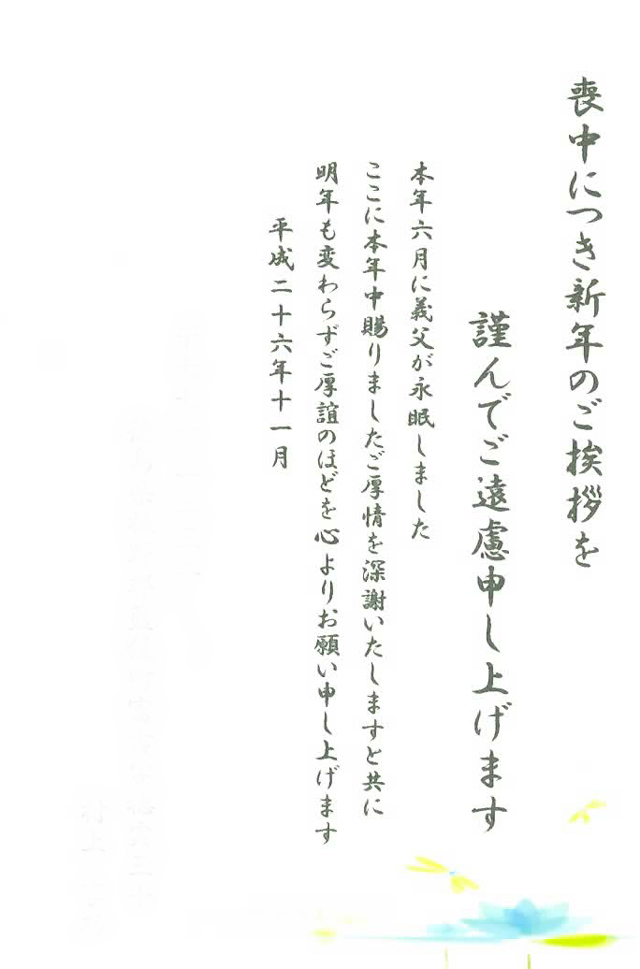 喪中につき新年のご挨拶を
謹んでご遠慮申し上げます
本年六月に義父が永眠しました
ここに本年中賜りましたご厚情を深謝いたしますと共に
明年も変わらずご厚誼のほどを心よりお願い申し上げます
平成二十六年十一月